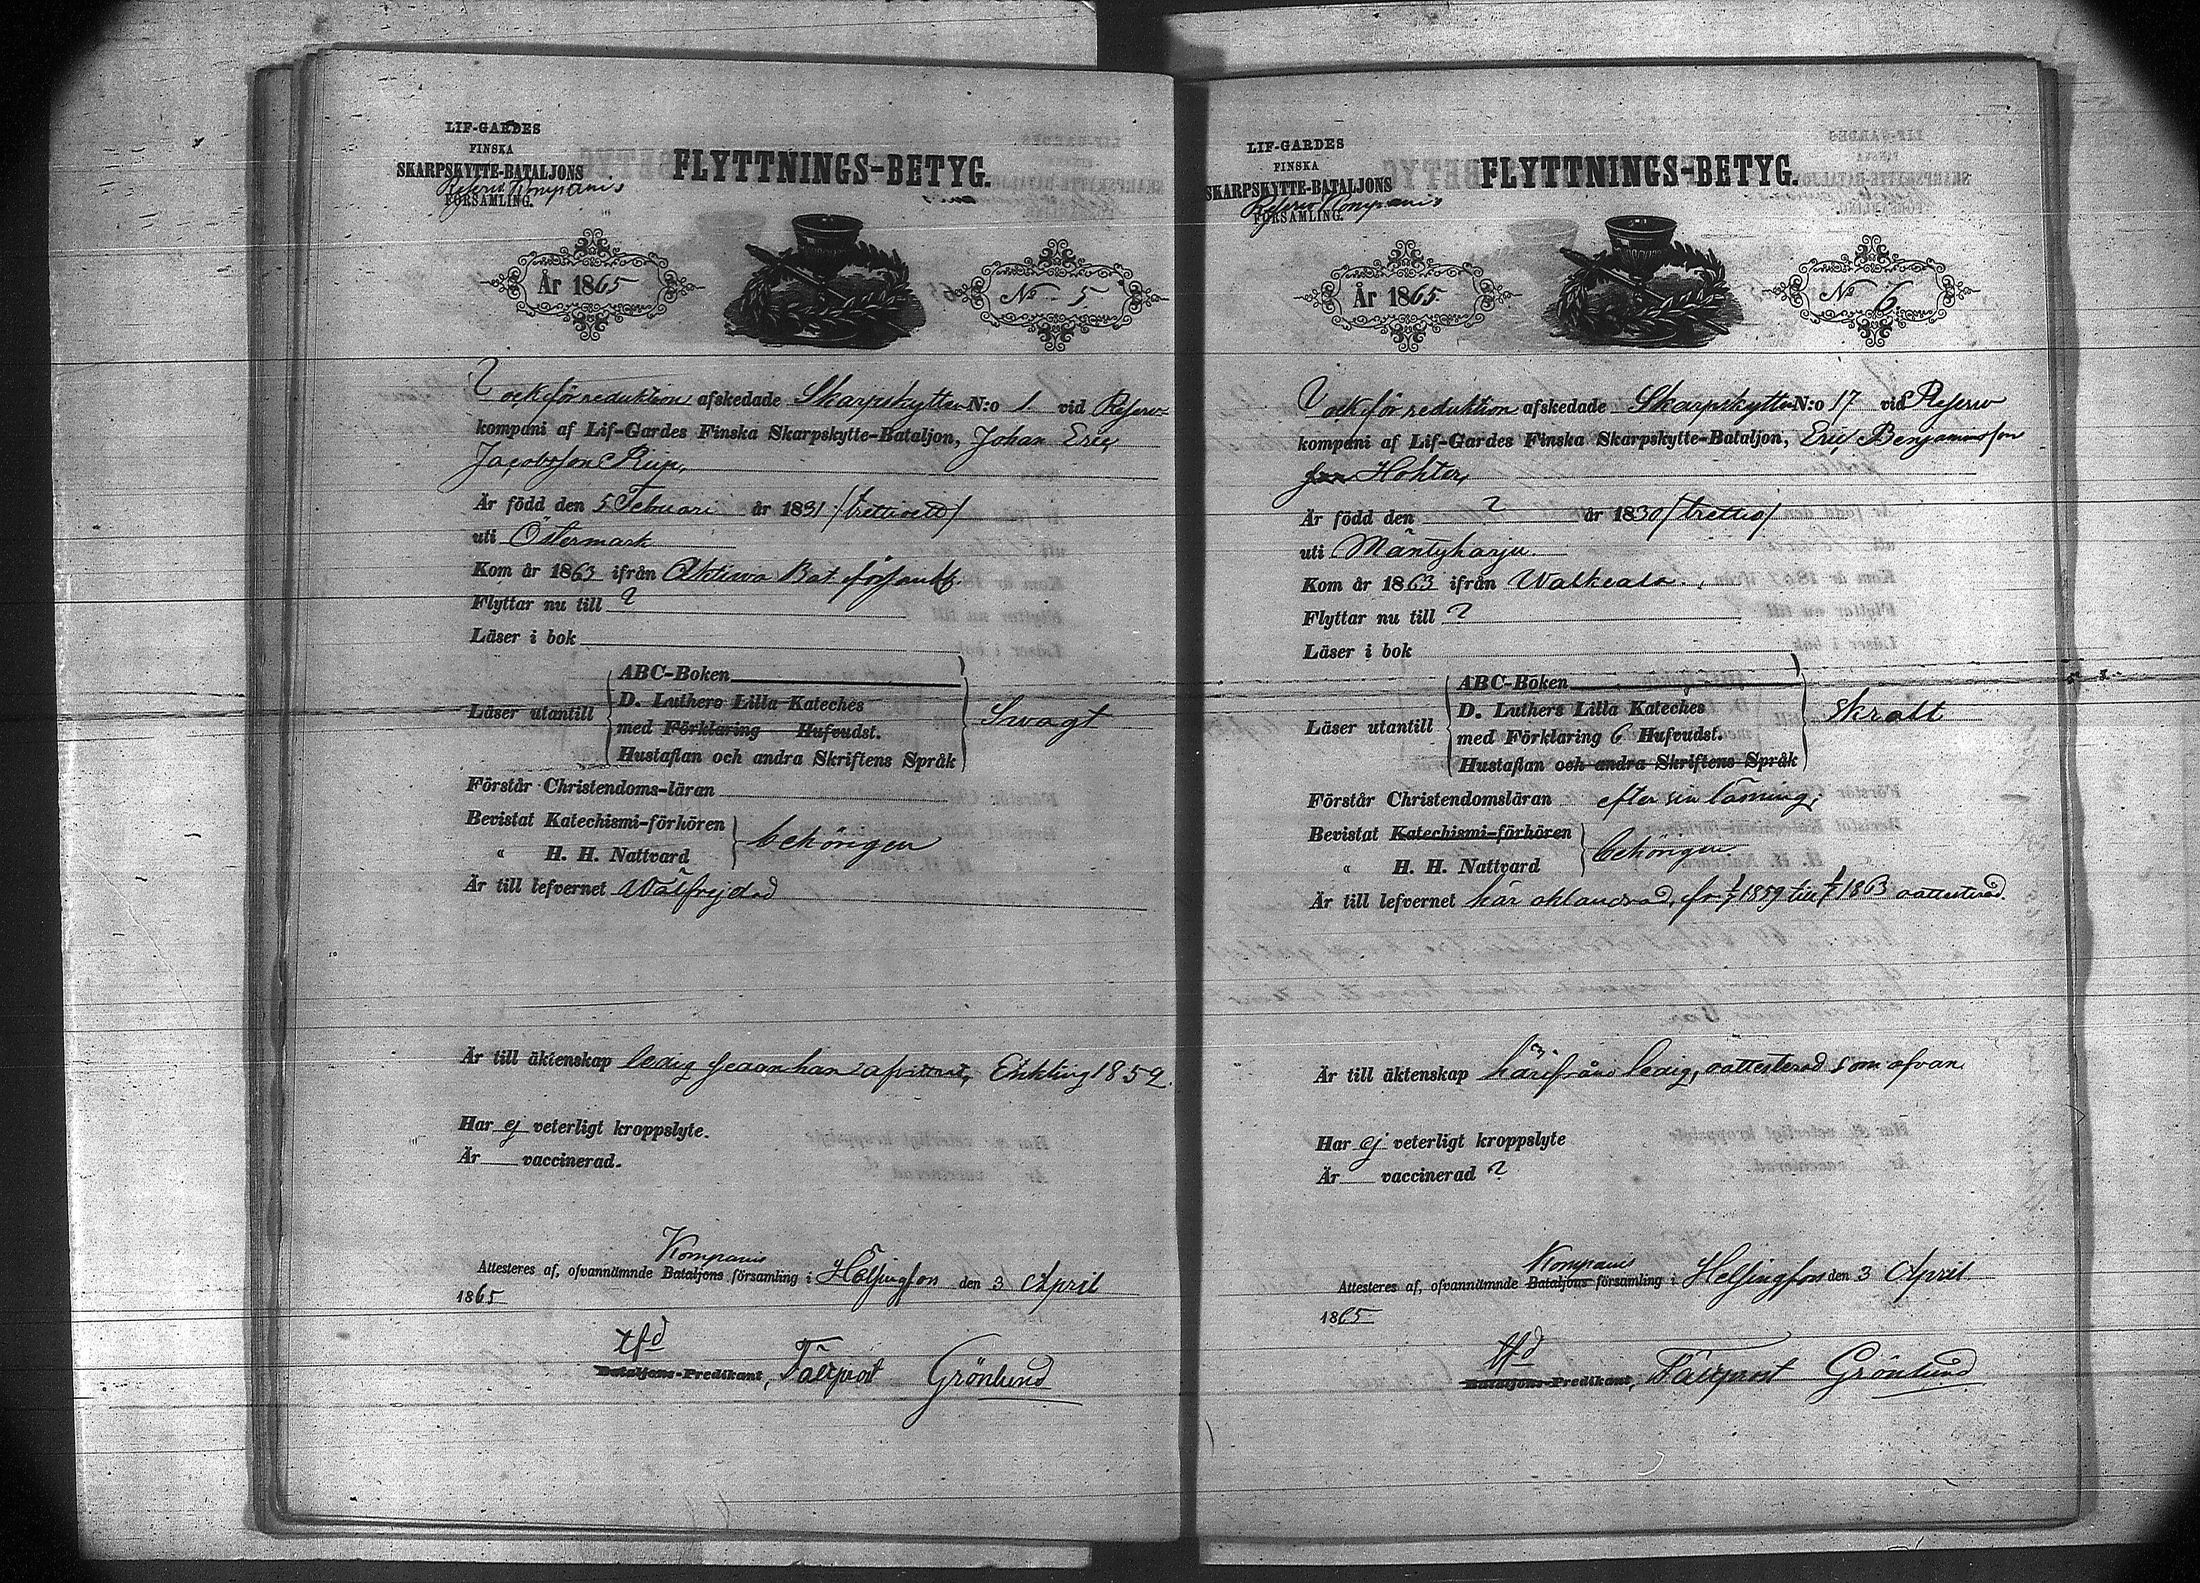 LIF-GARDES
FINSKA
SKARPSKYTTE-BATALJONS
Reserv Kompanis
FÖRSAMLING.
FLYTTNINGS-BETYG.
År 1865
No 5
och för reduktion afskedade Skarpskytten N:o 1. vid Reserv
kompani af Lif-Gardes Finska Skarpskytte-Bataljon, Johan Eric
Jacobsson Piip,
Är född den 5 Februari år 1831 /trettioett/
uti Östermark
Kom år 1863 ifrån Aktiva Bat. församl.
Flyttar nu till ?
Läser i bok
Läser utantill
ABC-Boken
D. Luthers Lilla Kateches
med Förklaring Hufvudst.
Hustaflan och andra Skriftens Språk
Svagt
Förstår Christendoms-läran
Bevistat Katechismi-förhören
" H. H. Nattvard
behörigen
Är till lefvernet Wälfrejdad
Är till äktenskap ledig Enkling 1859.
Har ej veterligt kroppslyte.
Är vaccinerad.
Kompanis
Attesteras af, ofvannämnde Bataljons församling i Helsingfors den 3 April
1865
tfd
Bataljons-Predikant, Fältprost Grönlund
LIF-GARDES
FINSKA
SKARPSKYTTE-BATALJONS
Reserv Kompanis
FÖRSAMLING.
FLYTTNINGS-BETYG.
År 1865.
No 6
och för reduktion afskedade Skarpskytten N:o 17 vid Reserv
kompani af Lif-Gardes Finska Skarpskytte-Bataljon, Eric Benjaminsson
Hohter,
Är född den ? år 1830 /trettio/
uti Mäntyharju.
Kom år 1863 ifrån Walkeala.
Flyttar nu till ?
Läser i bok
Läser utantill
ABC-Boken
D. Luthers Lilla Kateches
med Förklaring 6 Hufvudst.
Hustaflan och andra Skriftens Språk
Skralt
Förstår Christendomsläran efter sin låning,
Bevistat Katechismi-förhören
" H. H. Nattvard
behörigen
Är till lefvernet här oklandrad, fr. 1/7 1859 till 1/7 1863 oattesterad.
Är till äktenskap härifrån ledig, oattesterad som ofvan
Har ej veterligt kroppslyte
Är vaccinerad ?
Kompanis
Attesteras af, ofvannämnde Bataljons församling i Helsingfors den 3 April
1865
tfd
Bataljons-Predikant, Fältprost Grönlund